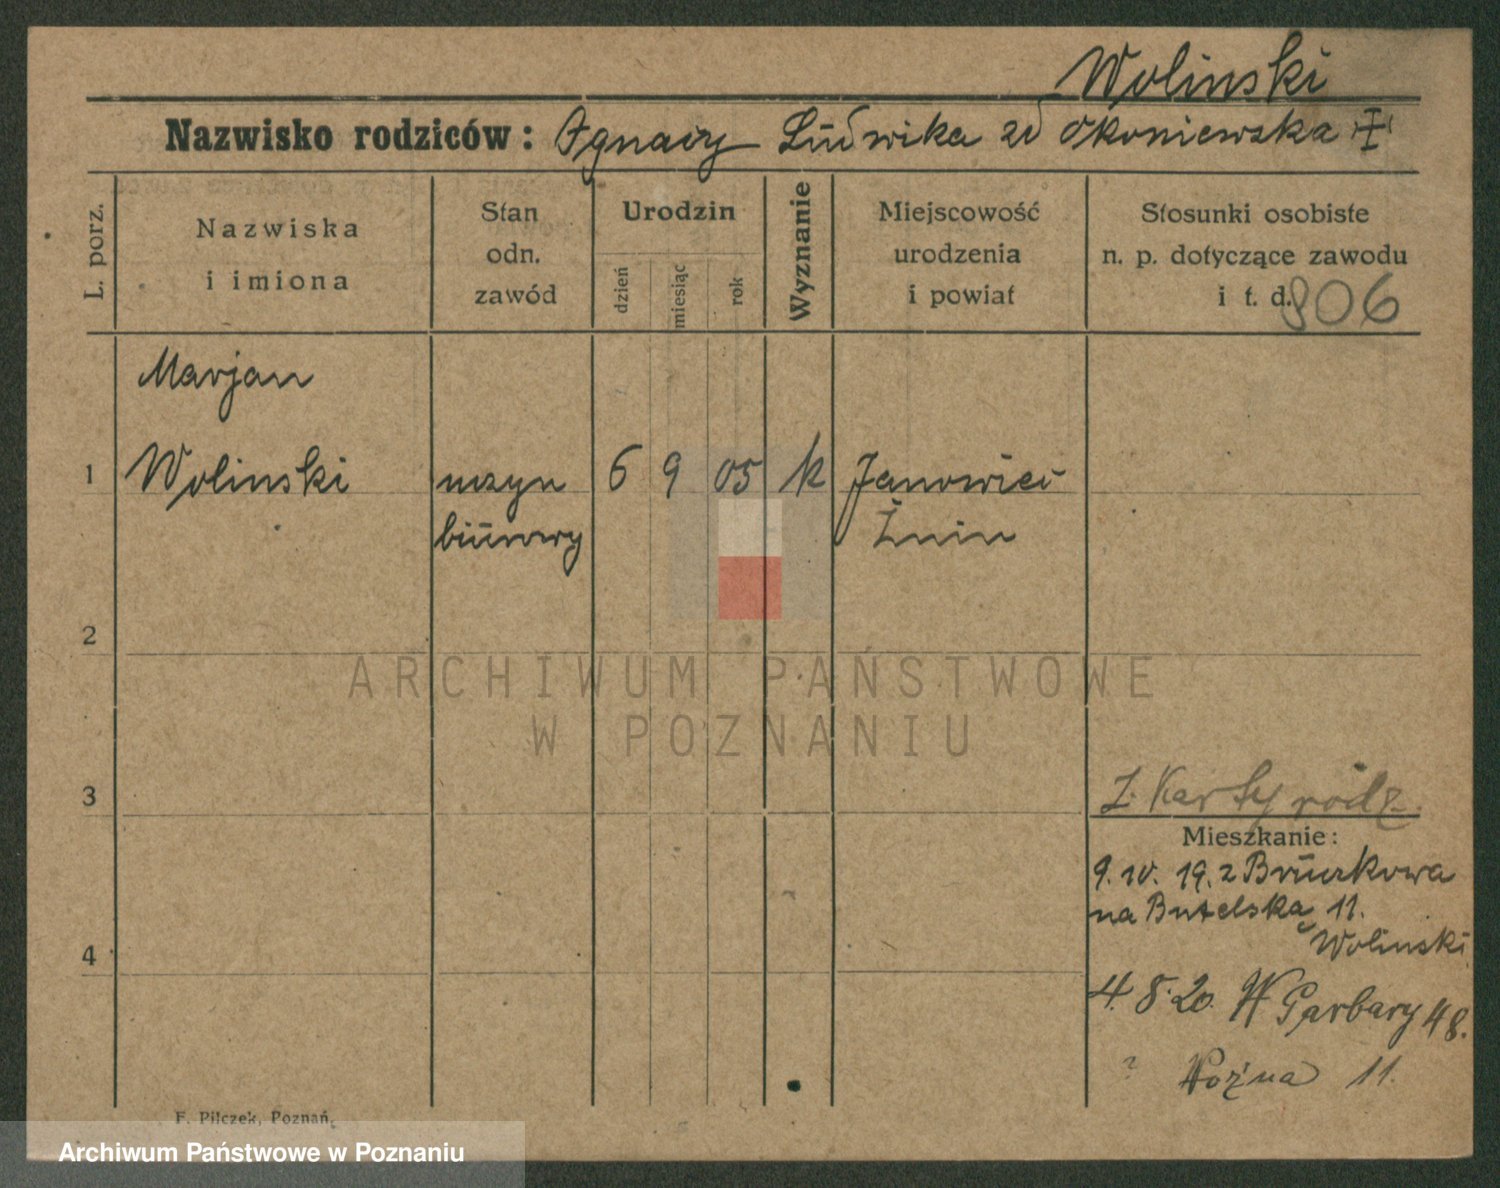 Wolinski
Nazwisko rodziców: Ignacy Ludwika zd Okoniewska
L. porz.
Nazwiska
i imiona
Stan
odn.
zawód
Urodzin
dzień
miesiąc
rok
Wyznanie
Miejscowość
urodzenia
i powiat
Stosunki osobiste
n. p. dotyczące zawodu
i t. d.
906
Marjan
1 Wolinski uczyn 6 9 05 k Janowiec
biurowy Żnin
2
ARCHIWUM PAŃSTWOWE
W POZNANIU
3
Z. Karty rodz.
Mieszkanie:
9. 10. 19. z Brückowa
na Butelska 11.
Wolinski
4
4. 8. 20. W Garbary 48.
? Woźna 11.
F. Pilczek, Poznań,
Archiwum Państwowe w Poznaniu